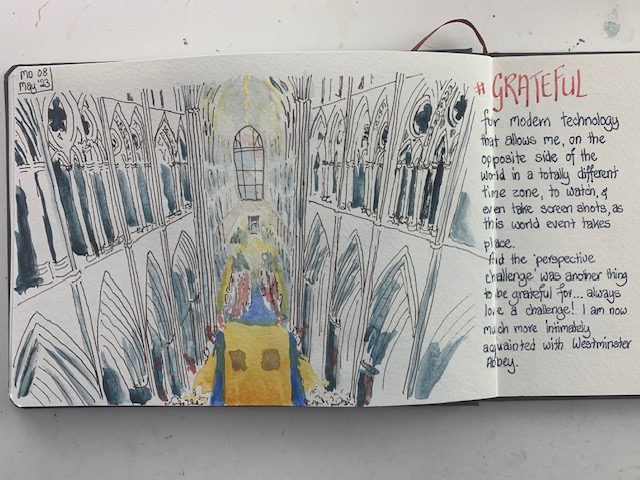 Mo 08
May '23
# GRATEFUL
for modern technology
that allows me, on the
opposite side of the
world in a totally different
time zone, to watch, &
even take screen shots, as
this world event takes
place.
And the 'perspective
challenge' was another thing
to be grateful for... always
love a challenge! I am now
much more intimately
acquainted with Westminster
Abbey.